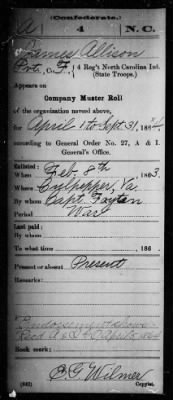 (Confederate.)
A 4 N. C.
James Allison
Pvt., Co. F, 4 Reg't North Carolina Inf.
(State Troops.)
Appears on
Company Muster Roll
of the organization named above,
for April 1 to Sept 31, 1864.
according to General Order No. 27, A & I
General's Office.
Enlisted:
When Feb. 8th 1863.
Where Culpepper, Va.
By whom Capt.
Period War
Last paid:
By whom
To what time 186 .
Present or absent Present
Remarks:
Endorsement shows
Rec'd A & I
Book mark:
(642) E G Wilmer
Copyist.